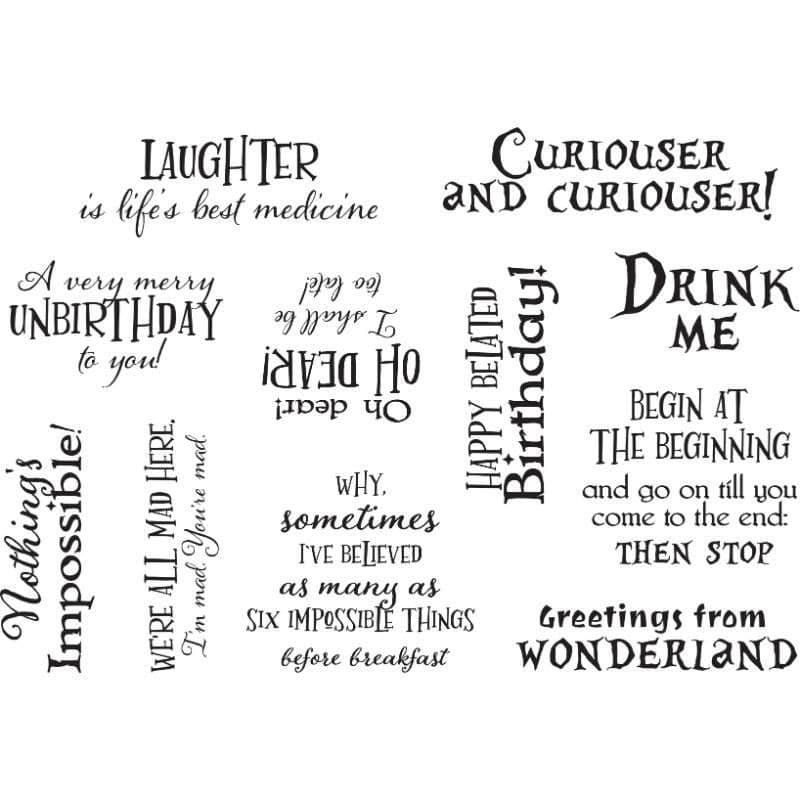 LAUGHTER
is life's best medicine
CURIOUSER
AND CURIOUSER!
A very merry
UNBIRTHDAY
to you!
Oh dear!
OH DEAR!
I shall be
too late!
HAPPY BELATED
Birthday!
DRINK
ME
BEGIN AT
THE BEGINNING
and go on till you
come to the end:
THEN STOP
Nothing's
Impossible!
WE'RE ALL MAD HERE.
I'm mad. You're mad.
WHY,
sometimes
I'VE BELIEVED
as many as
SIX IMPOSSIBLE THINGS
before breakfast
Greetings from
WONDERLAND